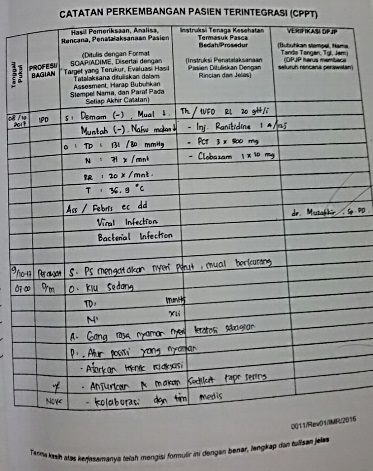 CATATAN PERKEMBANGAN PASIEN TERINTEGRASI (CPPT)
Tanggal
Pukul
PROFESI/
BAGIAN
Hasil Pemeriksaan, Analisa,
Rencana, Penatalaksanaan Pasien
(Ditulis dengan Format
SOAP/ADIME, Disertai dengan
Target yang Terukur, Evaluasi Hasil
Tatalaksana dituliskan dalam
Assesment, Harap Bubuhkan
Stempel Nama, dan Paraf Pada
Setiap Akhir Catatan)
Instruksi Tenaga Kesehatan
Termasuk Pasca
Bedah/Prosedur
(Instruksi Penatalaksanaan
Pasien Dituliskan Dengan
Rincian dan Jelas)
VERIFIKASI DPJP
(Bubuhkan stempel, Nama,
Tanda Tangan, Tgl, Jam)
(DPJP harus membaca
seluruh rencana perawatan)
08/10
2017
IPD
S : Demam (-), Mual ↓
Muntah (-). Nafsu makan ↓
O : TD : 131 /80 mmHg
N : 71 x /mnt
RR : 20 x /mnt.
T : 36.9 °C
Ass / Febris ec dd
Viral Infection
Bacterial Infection
Th / IVFD RL 20 gtt/i
- Inj. Ranitidine 1 A/
- PCT 3 x 500 mg
- Clobazam 1 x 10 mg
dr. Muzakkir, Sp PD.
9/10-17
07.00
Perawat
P/m
S. Ps mengatakan nyeri perut, mual berkurang
O. KU Sedang
TD: mmHg
N: x/i
A. Gang rasa nyaman nyeri teratasi sebagian
P. Atur posisi yang nyaman
- Ajarkan teknik relaksasi
- Anjurkan makan sedikit tapi sering
- Kolaborasi dgn tim medis
0011/Rev01/IMR/2016
Terima kasih atas kerjasamanya telah mengisi formulir ini dengan benar, lengkap dan tulisan jelas